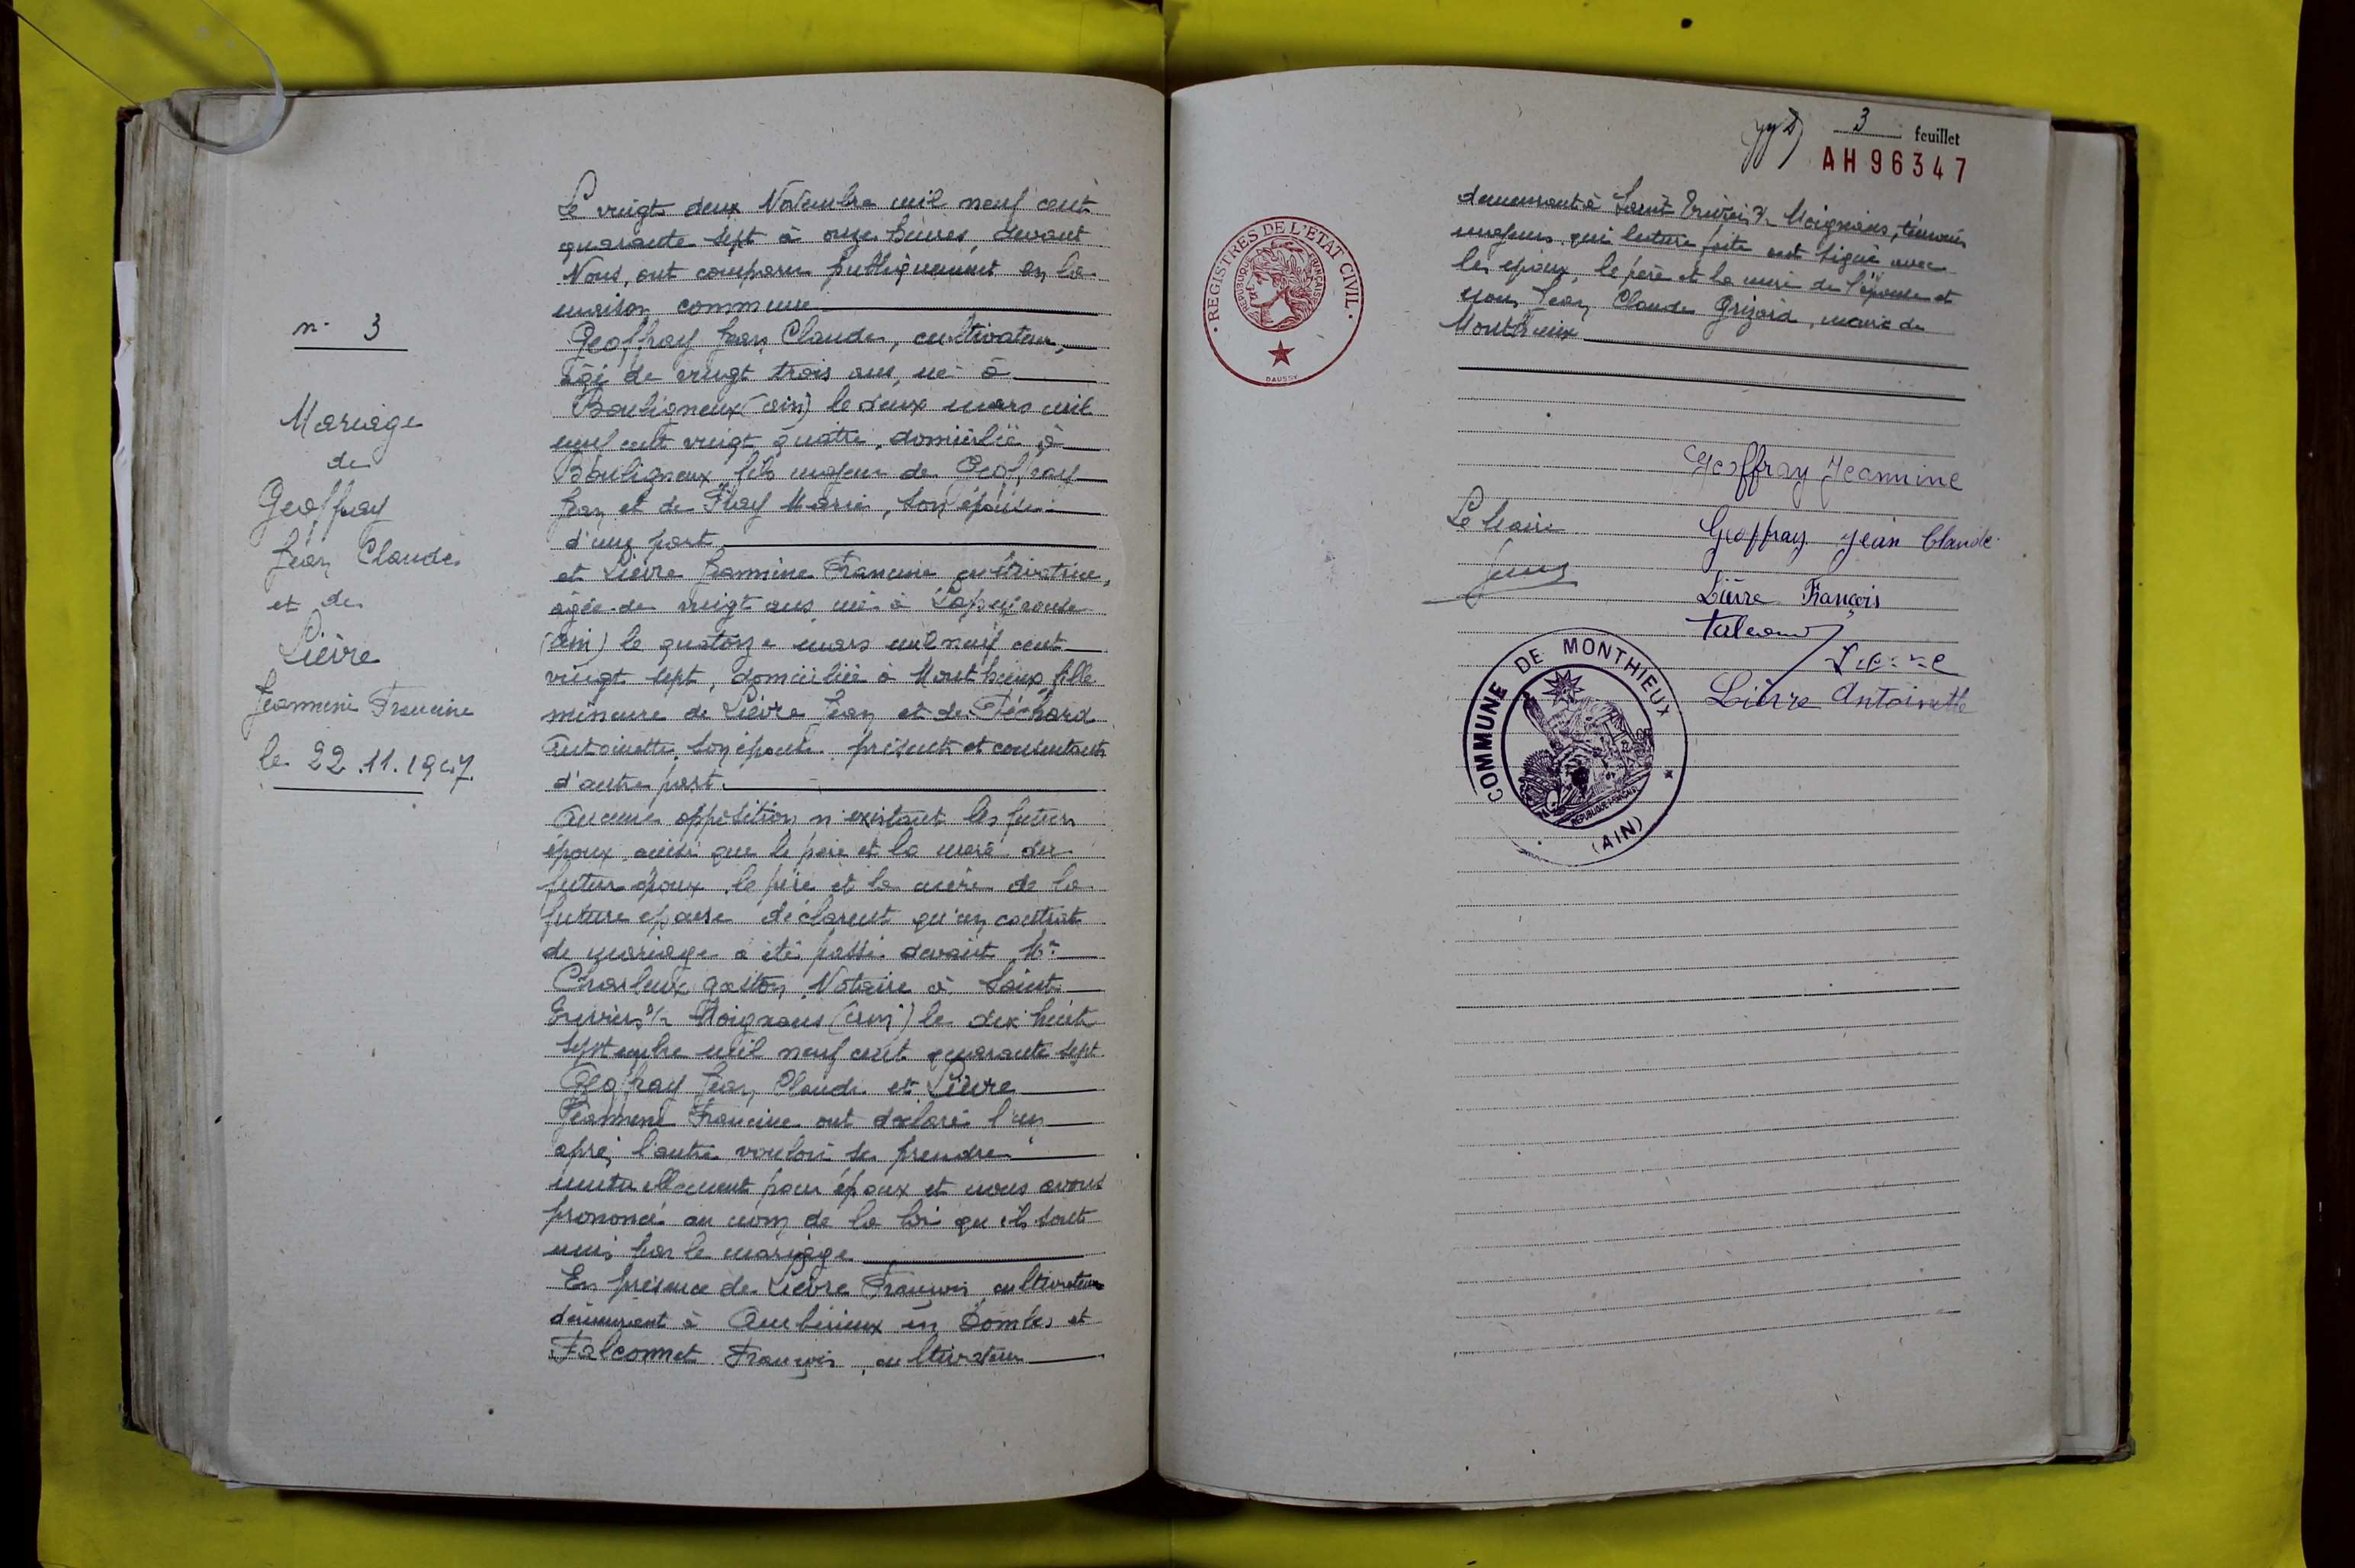 n° 3
Mariage
de
Geoffray
Jean Claude
et de
Lièvre
Jeannine Francine
le 22.11.1947.
Le vingt deux Novembre mil neuf cent
quarante sept à onze heures, devant
Nous, ont comparu publiquement en la
maison commune
Geoffray Jean Claude, cultivateur,
âgé de vingt trois ans, né à
Bouligneux (ain) le deux mars mil
neuf cent vingt quatre, domicilié à
Bouligneux fils majeur de Geoffray
Jean et de Flay Marie, son épouse
d'une part
et Lièvre Jeannine Francine cultivatrice,
âgée de vingt ans née à Lapeyrouse
(ain) le quatorze mars mil neuf cent
vingt sept, domiciliée à Monthieux, fille
mineure de Lièvre Jean et de Féchard
Antoinette, son épouse présents et consentants
d'autre part.
Aucune opposition n'existant les futurs
époux ainsi que le père et la mère du
futur époux, le père et la mère de la
future épouse déclarent qu'un contrat
de mariage a été passé devant Me
Charleux Gaston, Notaire à Saint
Trivier s/r Moignans (ain) le dix huit
septembre mil neuf cent quarante sept.
Geoffray Jean Claude et Lièvre
Jeannine Francine ont déclaré l'un
après l'autre vouloir se prendre
mutuellement pour époux et nous avons
prononcé au nom de la loi qu'ils sont
unis par le mariage
En présence de Lièvre François, cultivateur
demeurant à Ambérieux en Dombes et
Falconnet François, cultivateur
3 feuillet
AH 96347
REGISTRES DE L'ETAT CIVIL
REPUBLIQUE FRANÇAISE
DAUSSY
demeurant à Saint Trivier s/r Moignans, témoins
majeurs qui lecture faite ont signé avec
les époux, le père et la mère de l'épouse et
Nous Jean Claude Grizard, maire de
Monthieux
Geoffray Jeannine
Le Maire
Geoffray Jean Claude
Lièvre François
Lièvre Antoinette
COMMUNE DE MONTHIEUX
REPUBLIQUE FRANÇAISE
(AIN)